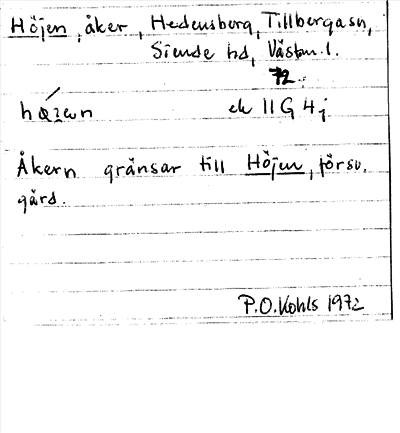 Höjen, åker, Hedensberg, Tillberga sn,
Siende hd, Västm. l.
72.
ek 11G 4j
Åkern gränsar till Höjen, försv.
gård.
P.O. Kohls 1972